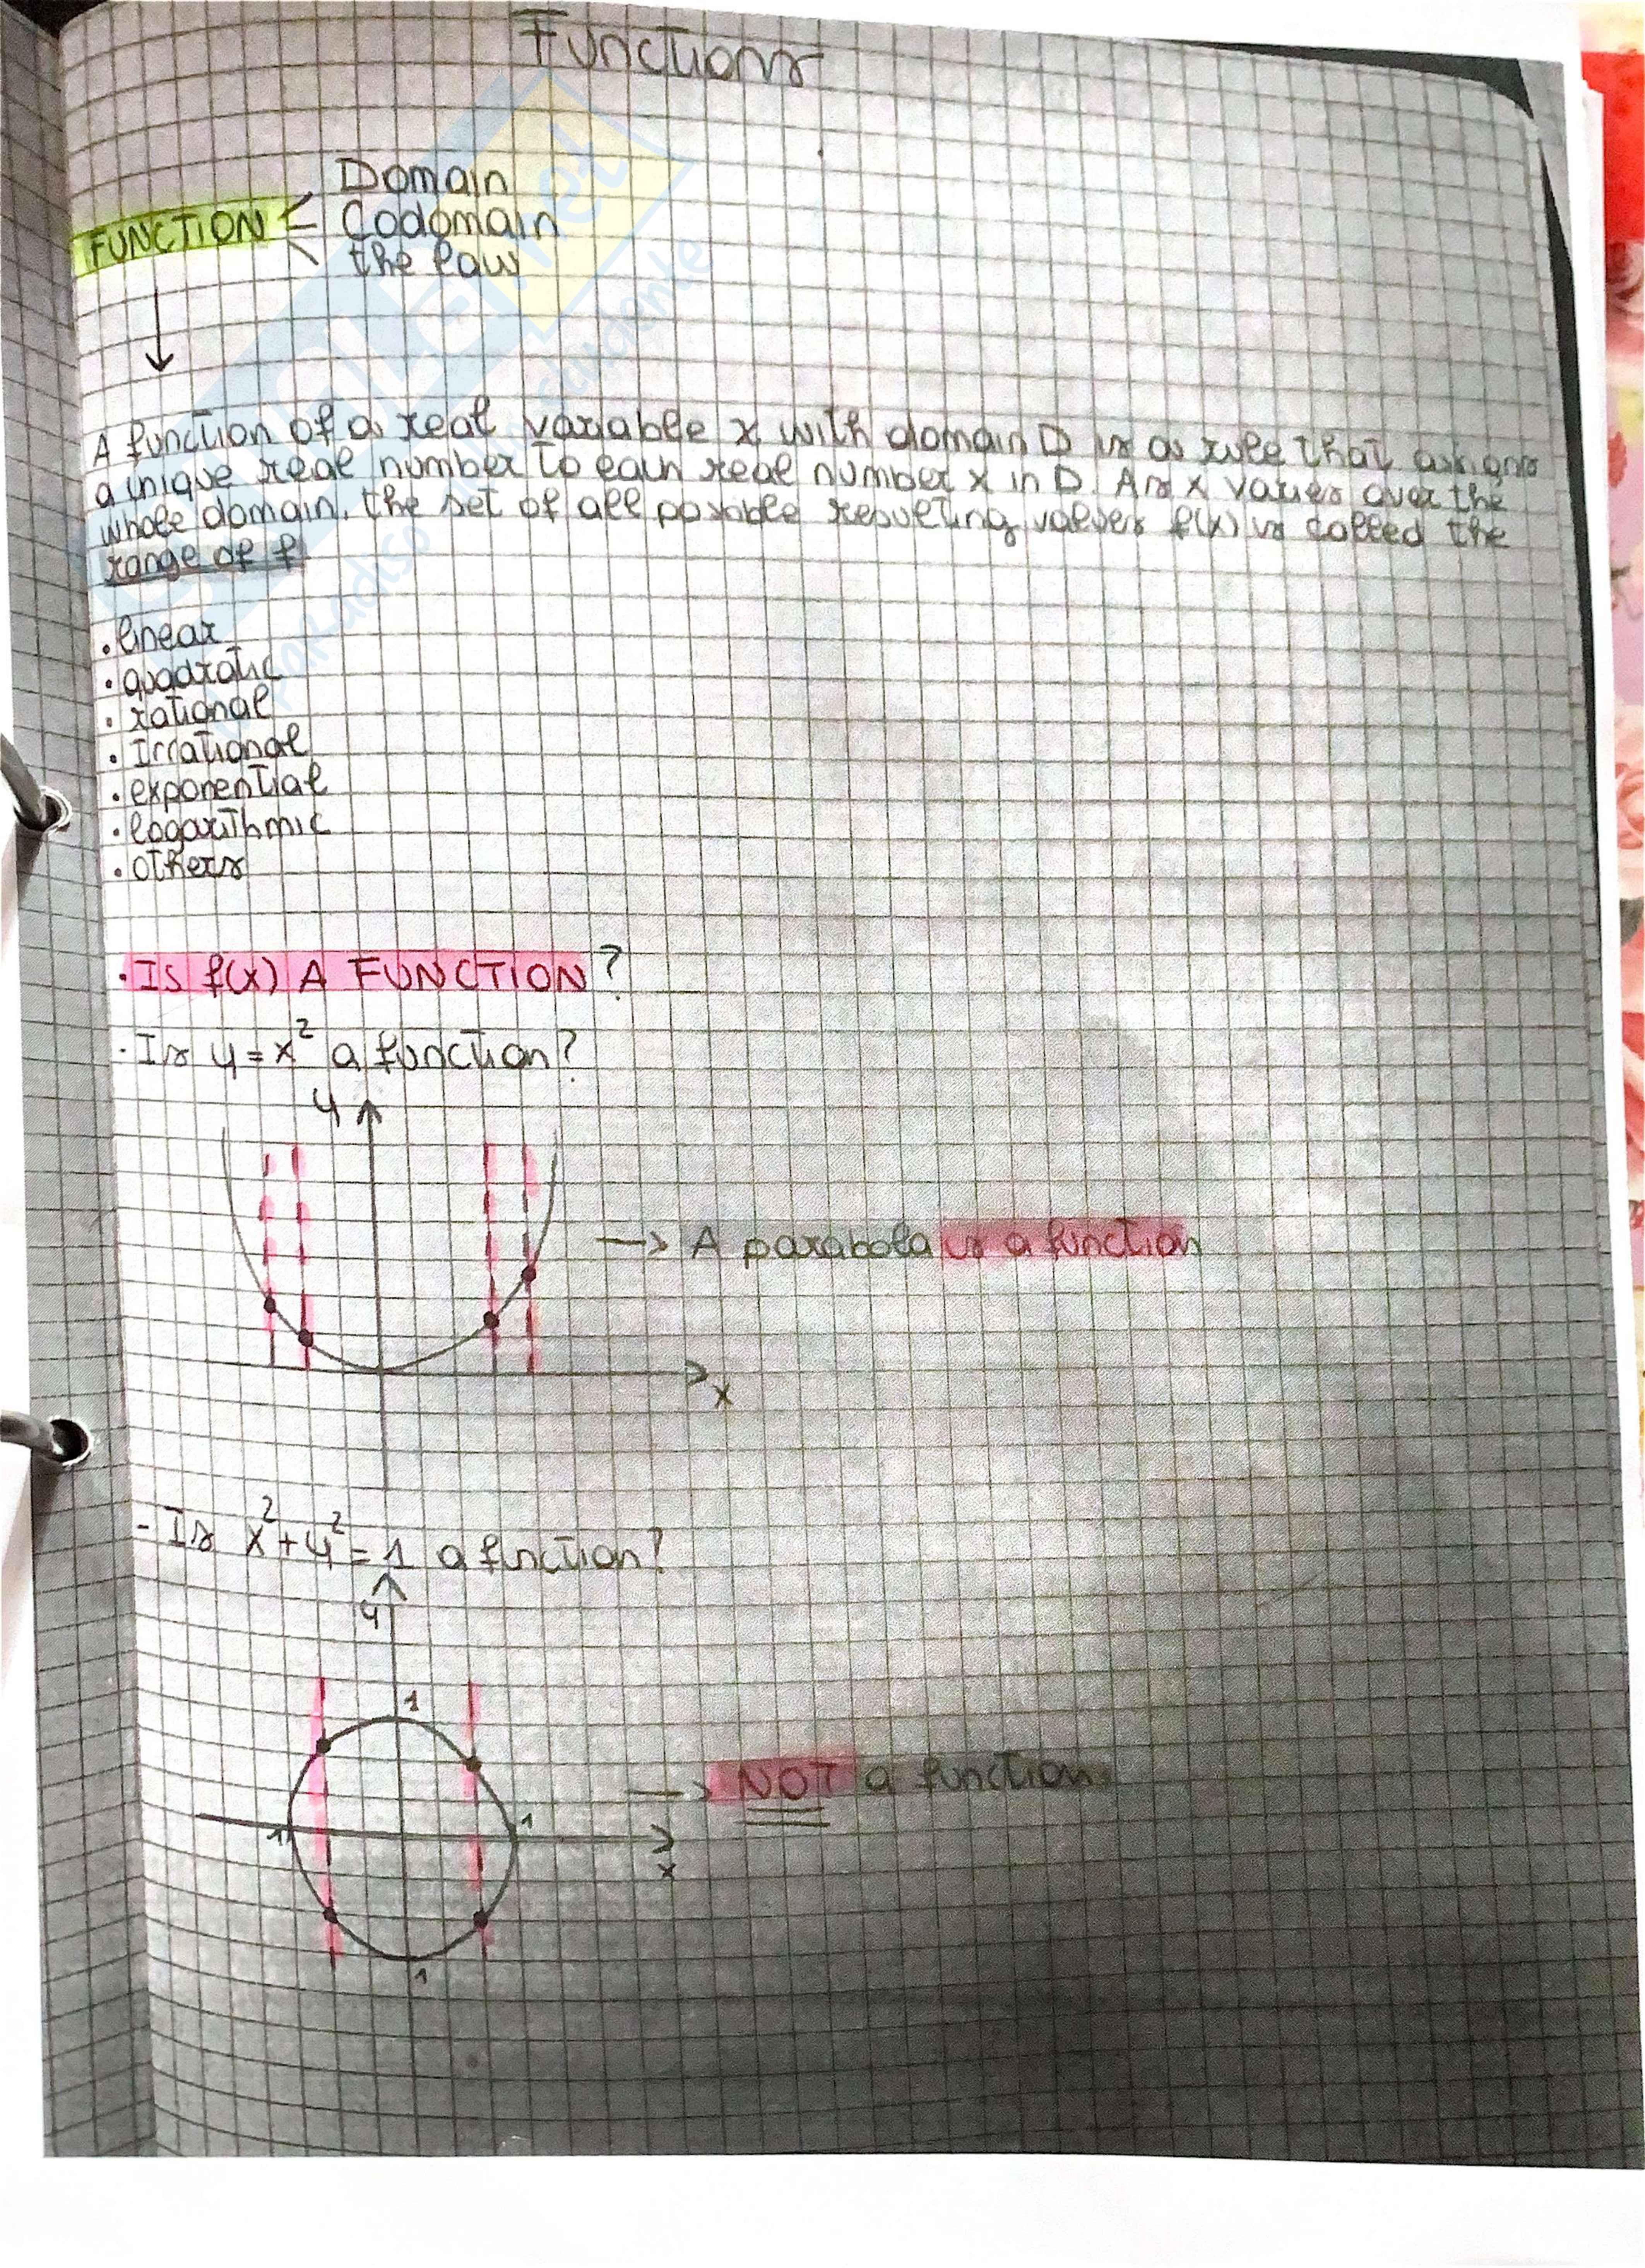 Functions
Domain
FUNCTION Codomain
the law
A function of a real variable x with domain D is a rule that assigns
a unique real number to each real number x in D. As x varies over the
whole domain, the set of all possible resulting values f(x) is called the
range of f
. linear
. quadratic
. rational
. Irrational
. exponential
. logarithmic
. others
. IS f(x) A FUNCTION?
- Is y = x² a function?
y
→ A parabola is a function
x
- Is x² + y² = 1 a function?
y
1
→ NOT a function
1 1
x
1